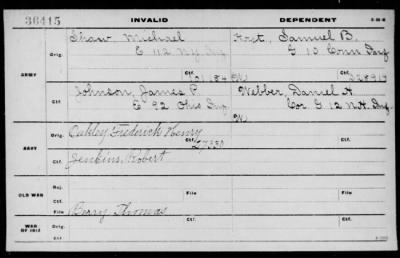 36415 INVALID DEPENDENT
Shaw, Michael Samuel B.
Orig. E 112 N.Y. Inf. G 10 Conn Inf
ARMY Ctf. Ctf.
Johnson, James P. Webber, Daniel H.
E 92 Ohio Inf. Cor G 12 N.H. Inf.
W
Orig. Oakley Frederick Henry
NAVY Ctf. Ctf.
Ctf. Jenkins, Robert
Rej.
OLD WAR Ctf. File File
File Berry Thomas
WAR OF 1812 Orig. Ctf. Ctf.
Ctf.